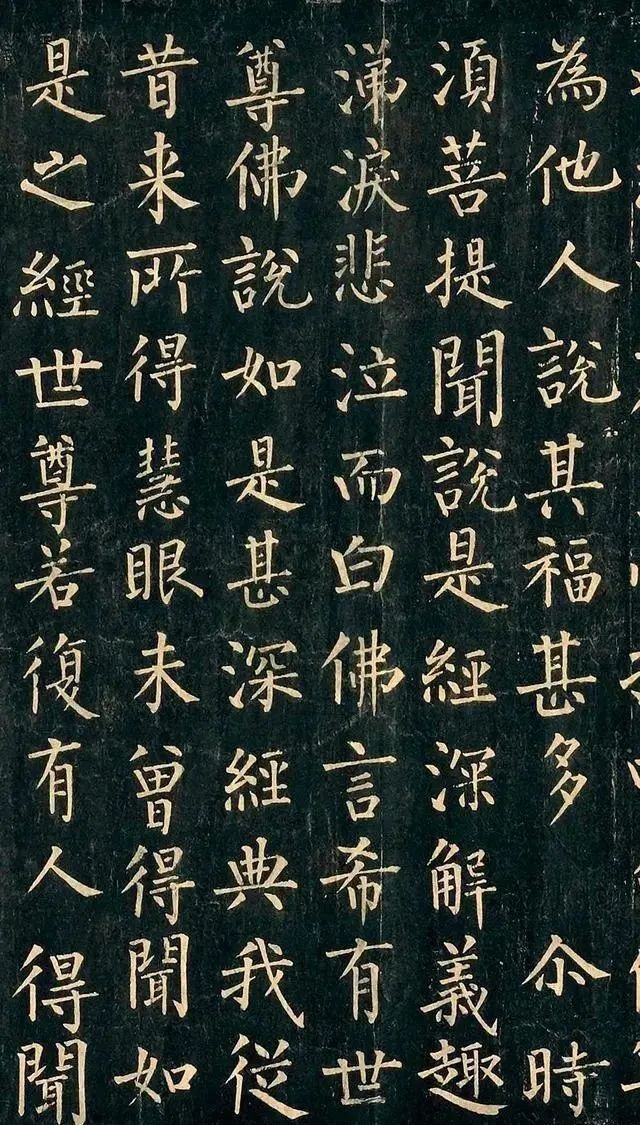 為他人說其福甚多 尒時
湏菩提聞說是經深解義趣
涕淚悲泣而白佛言希有世
尊佛說如是甚深經典我從
昔来所得慧眼未曾得聞如
是之經世尊若復有人得聞